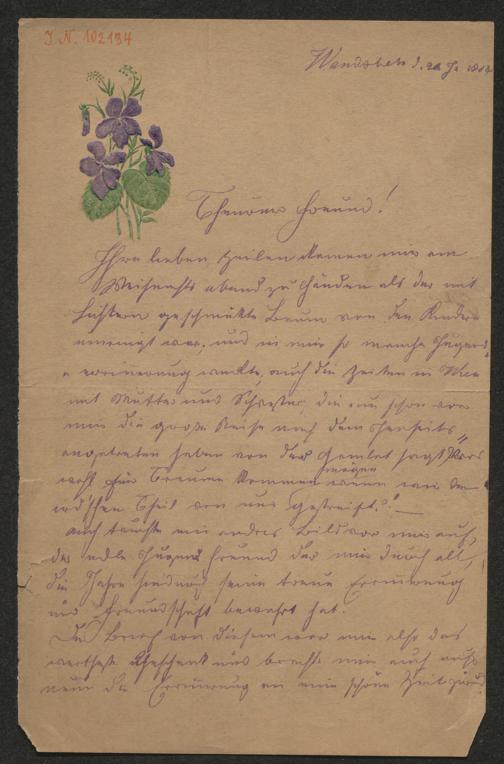 I. N. 102194
Wandsbek d.
Theurer Freund!
Ihre lieben Zeilen kamen mir am
Weihnachts abend zu Händen als der mit
Lichtern geschmükte Baum von den Kindern
umringt war, und in mir so manche Jugend
erinnerung weckte, auch die Zeiten in Wien
mit Mutter und Schwester, die nun schon vor
mir die große Reise nach dem Jenseits
angetreten haben von der Hamlet sagt
wohl für Träume kommen mögen wenn wir den
ird'schen Theil von uns gestreift."! —
Auch tauchte ein andres Bild vor mir auf,
der edle Jugend Freund der mir durch all,
die Jahre hindurch seine treue Erinnerung
und Freundschaft bewahrt hat.
Der Brief von diesem war mir also das
wertheste Geschenk und brachte mir auch aufs
neue die Erinnerung an eine schöne Zeit zurück